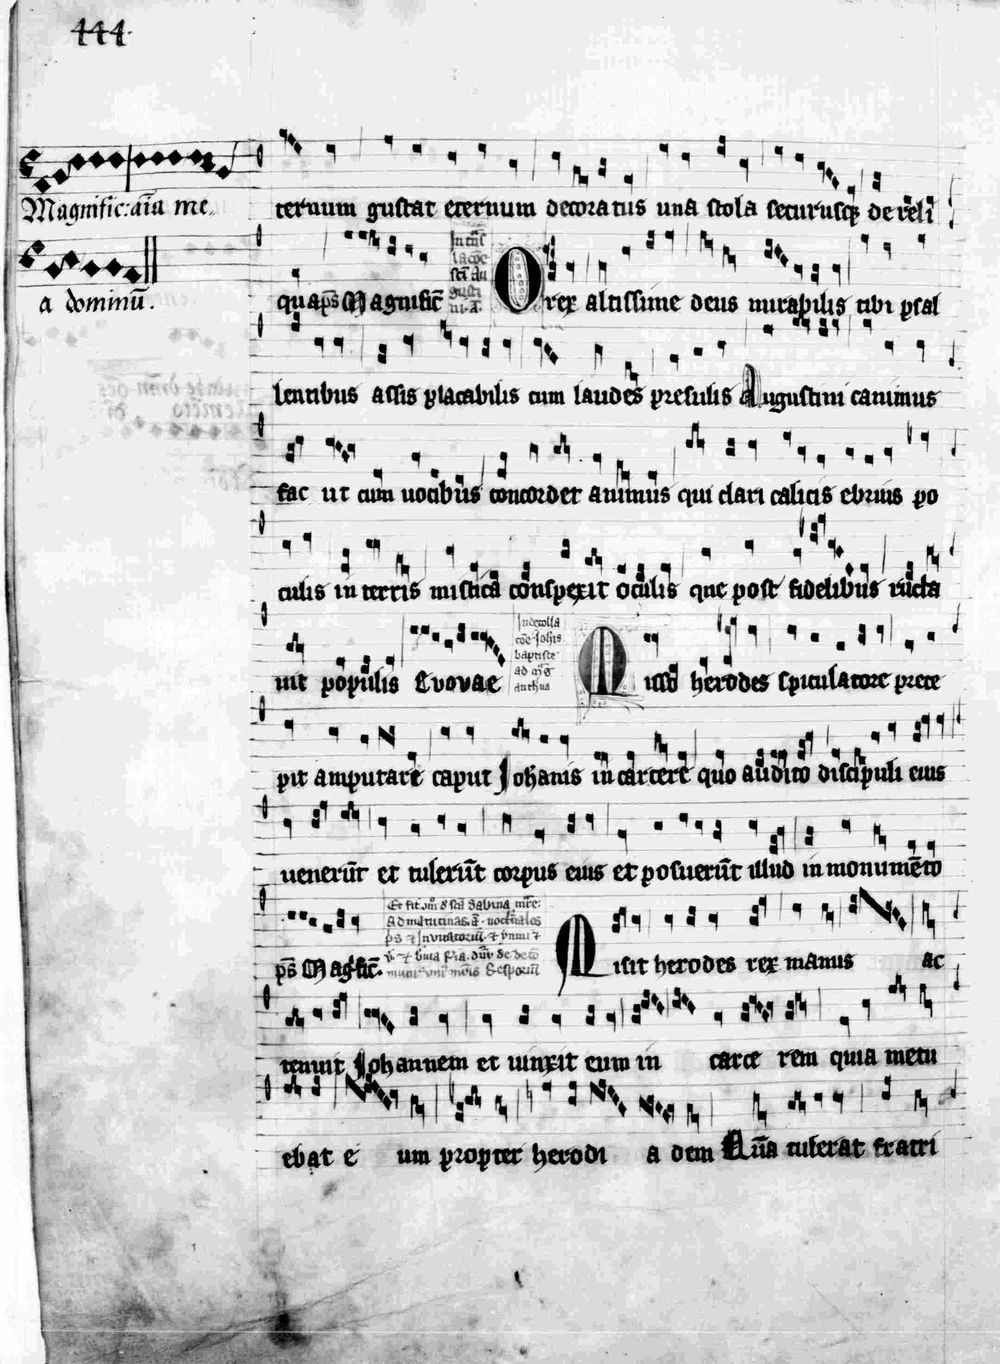 444
Magnific: aīa me
a dominū.
ternum gustat eternum decoratus una stola securusqꝫ de reli
quiaps̄ Magnific̄
O rex altissime deus mirapilis tibi psal
lentibus assis placabilis cum laudes presulis Augustini canimus
fac ut cum uocibus concordet animus qui clari calicis ebrius po
culis in terris mistica conspexit oculis que post fidelibus ructa
uit populis Euovae
In decolla
cōe Johis
baptiste
ad
Misso herodes spiculatore prece
pit amputare caput Johanis in carcere quo audito discipuli eius
uenerūt et tulerūt corpus eius et posuerūt illud in monumēto
ps̄ Magnfic̄.
Et fit de sc̄a Sabina
Misit herodes rex manus ac
tenuit Johannem et uinxit eum in carce rem quia metu
ebat e um propter herodi a dem Quā tulerat fratri